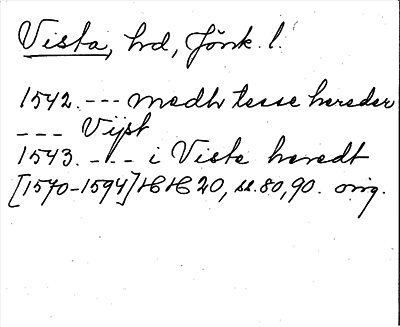 Vista, hrd, Jönk. l.
1542. --- medh tesse hereder
--- Vijst
1543. --- i Vista heredt
[1570-1594] HH 20, ss. 80, 90. orig.